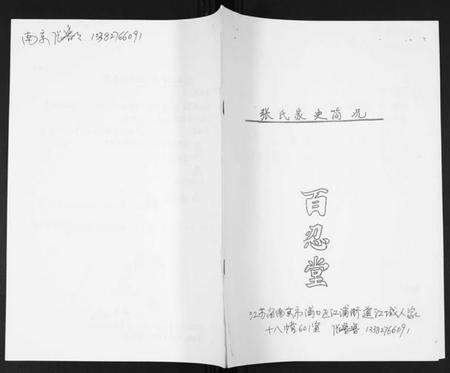 南京 张 13382766091
张氏家史简况
百忍堂
江苏省南京市浦口区江浦街道江城人家
十八幢601室 张 13382766091